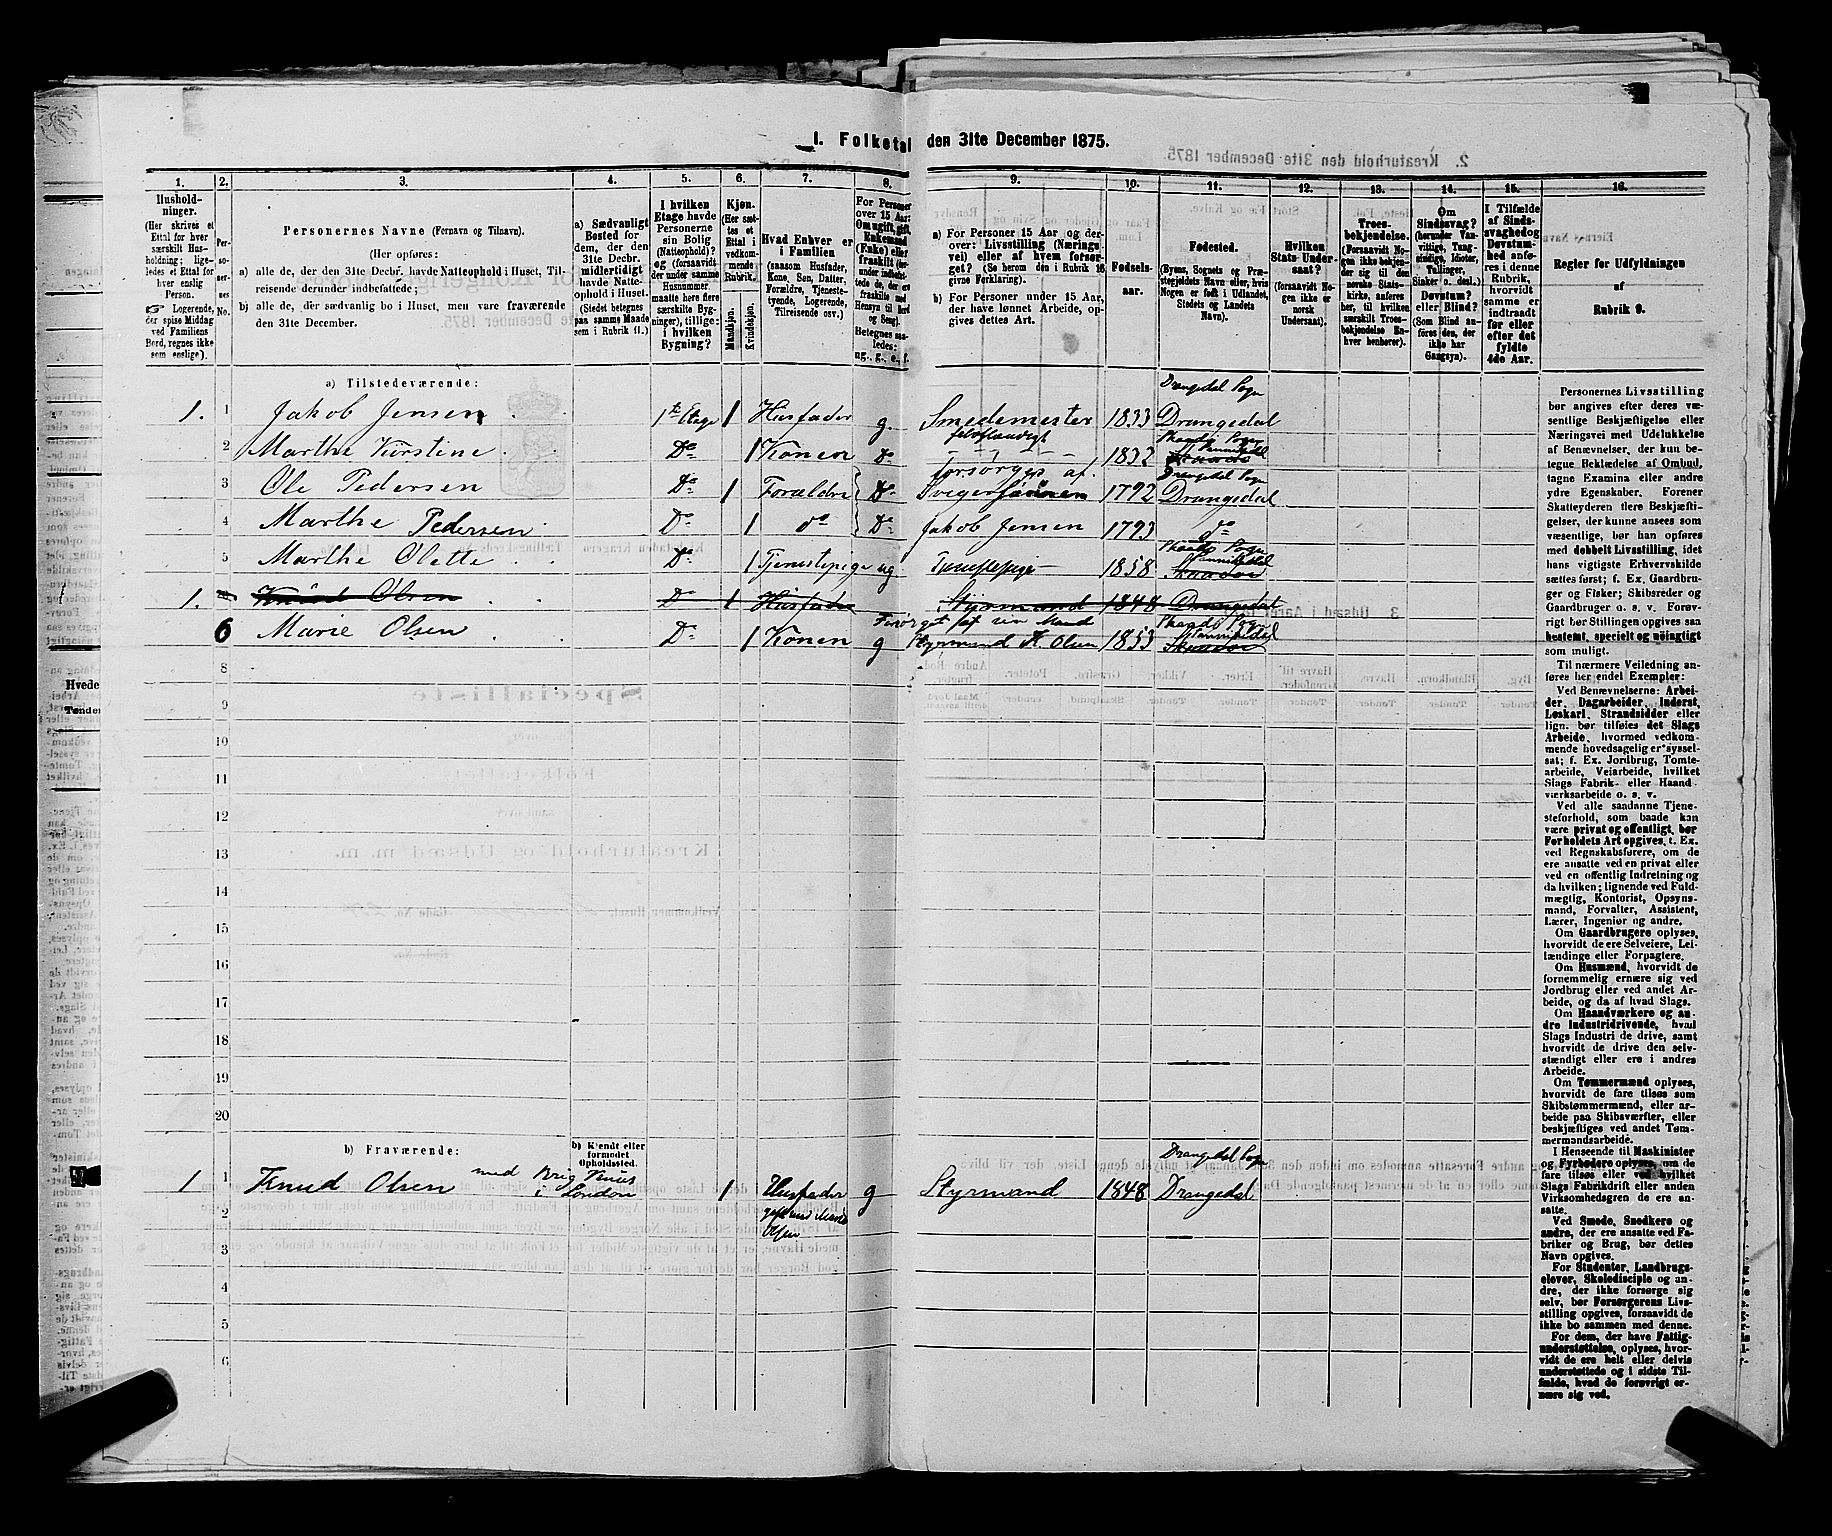 1. Folketal den 31te December 1875.
1. 2. 3. 4. 5. 6. 7. 8. 9. 10. 11. 12. 13. 14. 15. 16.
Hushold-
ninger.
(Her skrives et
Ettal for hver
særskilt Hus-
holdning; lige-
ledes et Ettal for
hver enslig
Person.
☞ Logerende,
der spise Middag
ved Familiens
Bord, regnes ikke
som enslige).
Per-
so-
ner-
nes
No.
Personernes Navne (Fornavn og Tilnavn).
(Her opføres:
a) alle de, der den 31te Decbr. havde Natteophold i Huset, Til-
reisende derunder indbefattede;
b) alle de, der sædvanlig bo i Huset, men vare fraværende
den 31te December.
a) Sædvanligt
Bosted for
dem, der den
31te Decbr.
midlertidigt
havde Natte-
ophold i Huset.
(Stedet betegnes
paa samme Maade
som i Rubrik 11.)
I hvilken
Etage havde
Personerne
sin Bolig
(Natteophold)?
og (forsaavidt
der under samme
Husnummer
maatte høre flere
særskilte Byg-
ninger), tillige:
i hvilken
Bygning?
Kjøn.
(Her sæt-
tes et
Ettal i
vedkom-
mende
Rubrik.)
Mandkjøn.
Kvindekjøn.
Hvad Enhver er
i Familien
(saasom Husfader,
Kone, Søn, Datter,
Forældre, Tjeneste-
tyende, Logerende,
Tilreisende osv.)
For Personer
over 15 Aar:
Om ugift, gift,
Enkemand
(Enke) eller
fraskilt (her-
under indbefat-
tede de, der ere
fraskilte med
Hensyn til Bord
og Seng).
Betegnes saa-
ledes:
ug., g., e., f.
a) For Personer 15 Aar og der-
over: Livsstilling (Nærings-
vei) eller af hvem forsør-
get? (Se herom den i Rubrik 16
givne Forklaring).
b) For Personer under 15 Aar,
der have lønnet Arbeide, op-
gives dettes Art.
Fødsels-
aar.
Fødested.
(Byens, Sognets og Præ-
stegjeldets Navn eller, hvis
Nogen er født i Udlandet,
Stedets og Landets
Navn).
Hvilken
Stats Under-
saat?
(forsaavidt No-
gen ikke er
norsk
Undersaat).
Troes-
bekjendelse.
(Forsaavidt No-
gen ikke bekjen-
der sig til den
norske Stats-
kirke, anføres
her, til hvilken
særskilt Troes-
bekjendelse En-
hver henhører).
Om
Sindssvag?
(herunder Van-
vittige, Tung-
sindige, Idioter,
Tullinger,
Sinker o. desl.)
Døvstum?
eller Blind?
(Som Blind an-
føres den, der
ikke har
Gangsyn).
I Tilfælde
af Sinds-
svaghed og
Døvstum-
hed anfø-
res i denne
Rubrik,
hvorvidt
samme er
indtraadt
før eller
efter det
fyldte
4de Aar.
Regler for Udfyldningen
af
Rubrik 9.
a) Tilstedeværende:
Drangedal Sogn
1. 1 Jakob Jensen 1te Etage 1 Husfader g. Smedemester 1833 Drangedal
Skaadø Sogn
2 Marthe Kirstine Do 1 Konen Do 1832 Sannikedal
Forsørges af Drangedal Sogn
3 Ole Pedersen Do 1 Forældre Do Svigersønnen 1792 Drangedal
4 Marthe Pedersen Do 1 do Do Jakob Jensen 1793 do
Skaadø Sogn
5 Marthe Olette Do 1 Tjenestepige ug Tjenestepige 1858 Sannikedal
1. Knud Olsen Do 1 Husfader Styrmand 1848 Drangedal
Forsørget af sin Mand Skaadø Sogn
6 Marie Olsen Do 1 Konen g Styrmand K. Olsen 1853 Sannikedal
8
9
10
11
12
13
14
15
16
17
18
19
20
b) Fraværende:
b) Kjendt eller
formodet
Opholdssted.
Drangedal Sogn
1 1 Knud Olsen med Brig Venus i London 1 Husfader g Styrmand 1848 Drangedal
2 gift med Marie
Olsen
3
4
5
6
Personernes Livsstilling
bør angives efter deres væ-
sentlige Beskjæftigelse eller
Næringsvei med Udelukkelse
af Benævnelser, der kun be-
tegne Beklædelse af Ombud,
tagne Examina eller andre
ydre Egenskaber. Forener
Skatteyderen flere Beskjæfti-
gelser, der kunne ansees som
væsentlige, bør han opføres
med dobbelt Livsstilling, idet
hans vigtigste Erhvervskilde
sættes først; f. Ex. Gaardbru-
ger og Fisker; Skibsreder og
Gaardbruger o. s. v. Forøv-
rigt bør Stillingen opgives saa
bestemt, specielt og nøiagtigt
som muligt.
Til nærmere Veiledning an-
føres her endel Exempler:
Ved Benævnelserne: Arbei-
der, Dagarbeider, Inderst,
Løskarl, Strandsidder eller
lign. bør tilføies det Slags
Arbeide, hvormed vedkom-
mende hovedsagelig er syssel-
sat; f. Ex. Jordbrug, Tomte-
arbeide, Veiarbeide, hvilket
Slags Fabrik- eller Haand-
værksarbeide o. s. v.
Ved alle saadanne Tjene-
steforhold, som baade kan
være privat og offentligt, bør
Forholdets Art opgives, t. Ex.
ved Regnskabsførere, om de
ere ansatte ved en privat eller
ved en offentlig Indretning og
da hvilken; lignende ved Fuld-
mægtig, Kontorist, Opsyns-
mand, Forvalter, Assistent,
Lærer, Ingeniør og andre.
Om Gaardbrugere oplyses,
hvorvidt de ere Selveiere, Lei-
lændinge eller Forpagtere.
Om Husmænd, hvorvidt de
fornemmelig ernære sig ved
Jordbrug eller ved andet Ar-
beide, og da af hvad Slags.
Om Haandværkere og an-
dre Industridrivende, hvad
Slags Industri de drive, samt
hvorvidt de drive den selv-
stændigt eller ere i andres
Arbeide.
Om Tømmermænd oplyses,
hvorvidt de fare tilsøs som
Skibstømmermænd, eller ar-
beide paa Skibsværfter, eller
beskjæftiges ved andet Tøm-
mermandsarbeide.
I Henseende til Maskinister
og Fyrbødere oplyses, om de
fare tilsøs eller ved hvilket
Slags Fabrikdrift eller anden
Virksomhedsgren de ere an-
satte.
Ved Smede, Snedkere og
andre, der ere ansatte ved Fa-
briker og Brug, bør dettes
Navn opgives.
For Studenter, Landbrugs-
elever, Skoledisciple og an-
dre, der ikke forsørge sig
selv, bør Forsørgerens Livs-
stilling opgives, forsaavidt de
ikke bo sammen med denne.
For dem, der have Fattig-
understøttelse, oplyses, hvor-
vidt de ere helt eller delvis
understøttede og i sidste Til-
fælde, hvad de forøvrigt er-
nære sig ved.